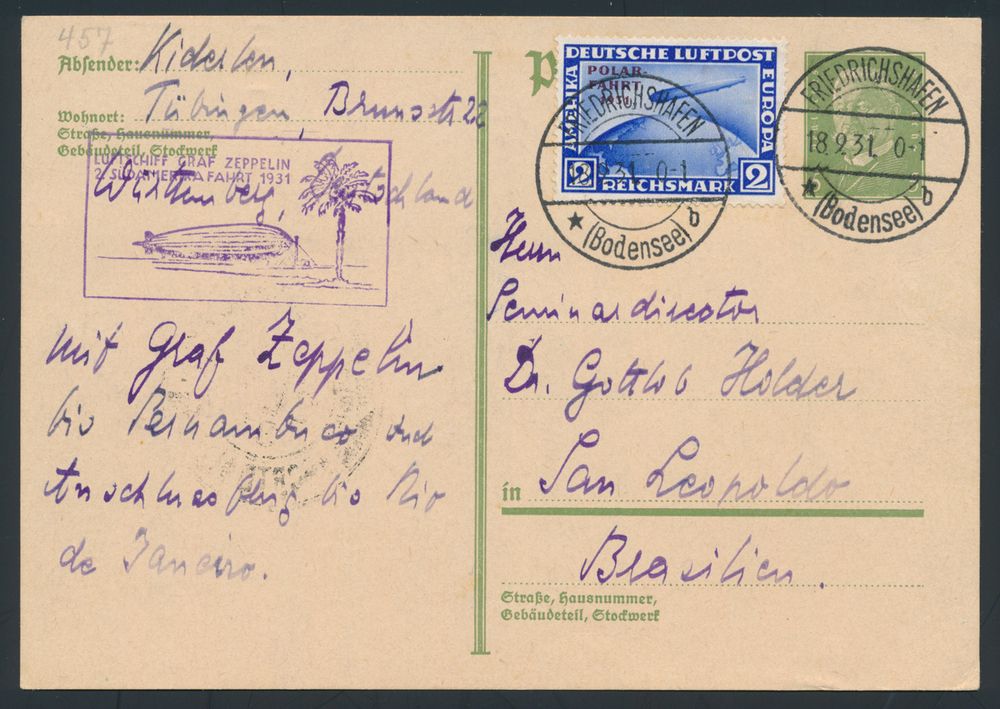 457
Absender: Kiderlen,
Wohnort: Tübingen, Brunsstr 22
Straße, Hausnummer,
Gebäudeteil, Stockwerk
Württemberg, Deutschland
LUFTSCHIFF GRAF ZEPPELIN
2. SÜDAMERIKAFAHRT 1931
mit Graf Zeppelin
bis Pernambuco und
Anschlussflug bis Rio
de Janeiro.
DEUTSCHE LUFTPOST
AMERIKA
EUROPA
POLAR-
FAHRT
1931
2 REICHSMARK 2
FRIEDRICHSHAFEN
18.9.31. 0-1
(Bodensee) b
FRIEDRICHSHAFEN
18.9.31. 0-1
(Bodensee) b
Herrn
Seminardirector
Dr. Gottlob Holder
in San Leopoldo
Brasilien.
Straße, Hausnummer,
Gebäudeteil, Stockwerk